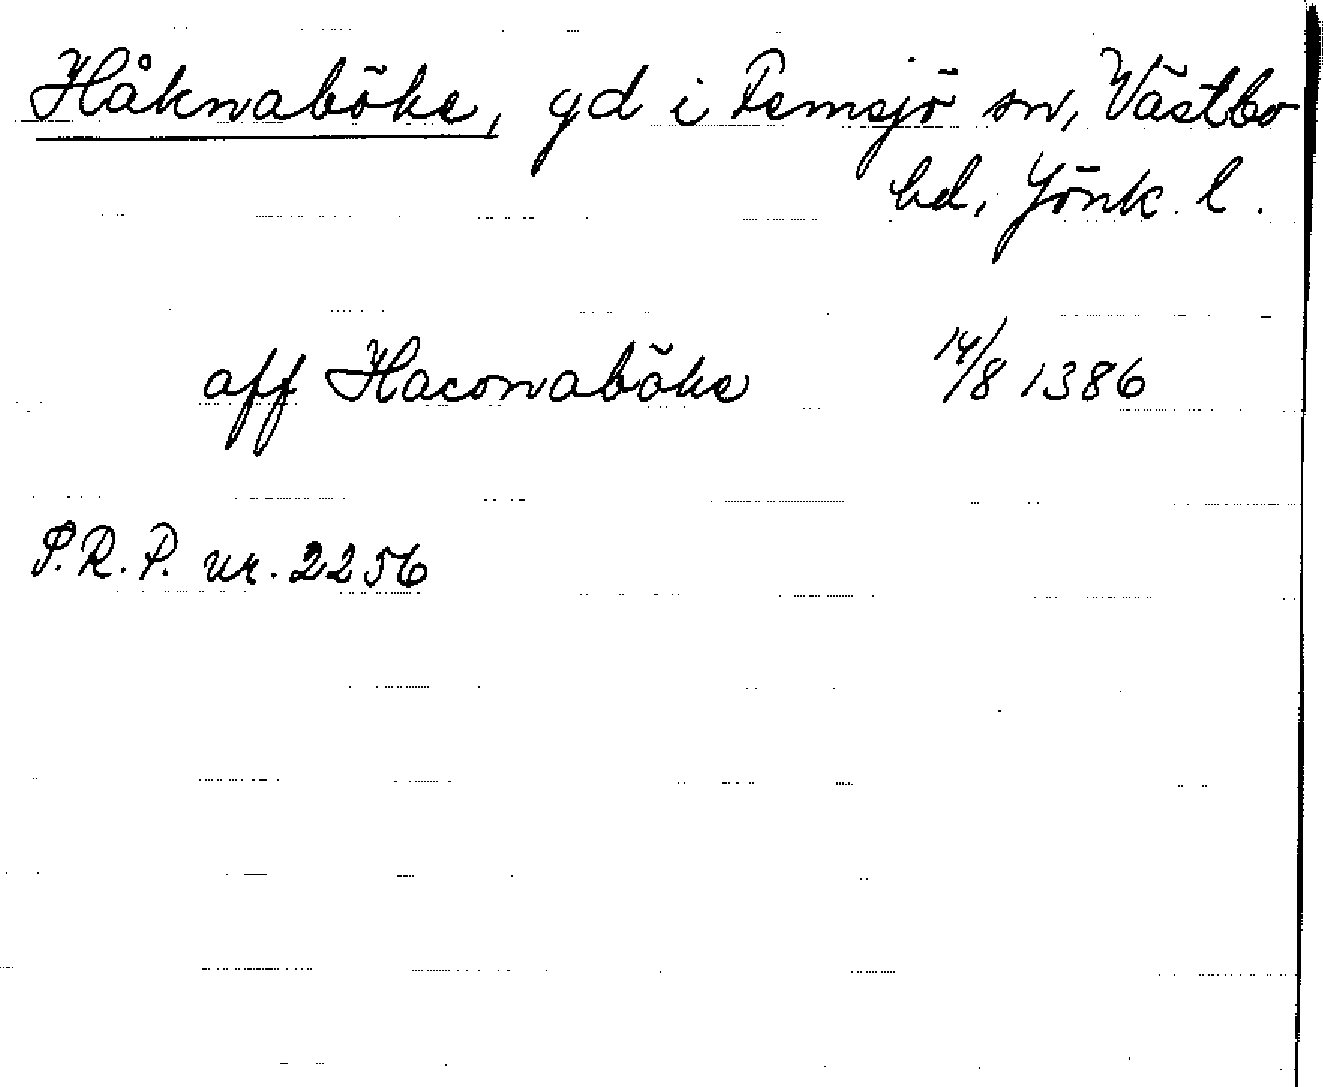 Håknaböke, gd i Femsjö sn, Västbo
hd, Jönk. l.
aff Haconaböke 14/8 1386
P.R.P. nr. 2256